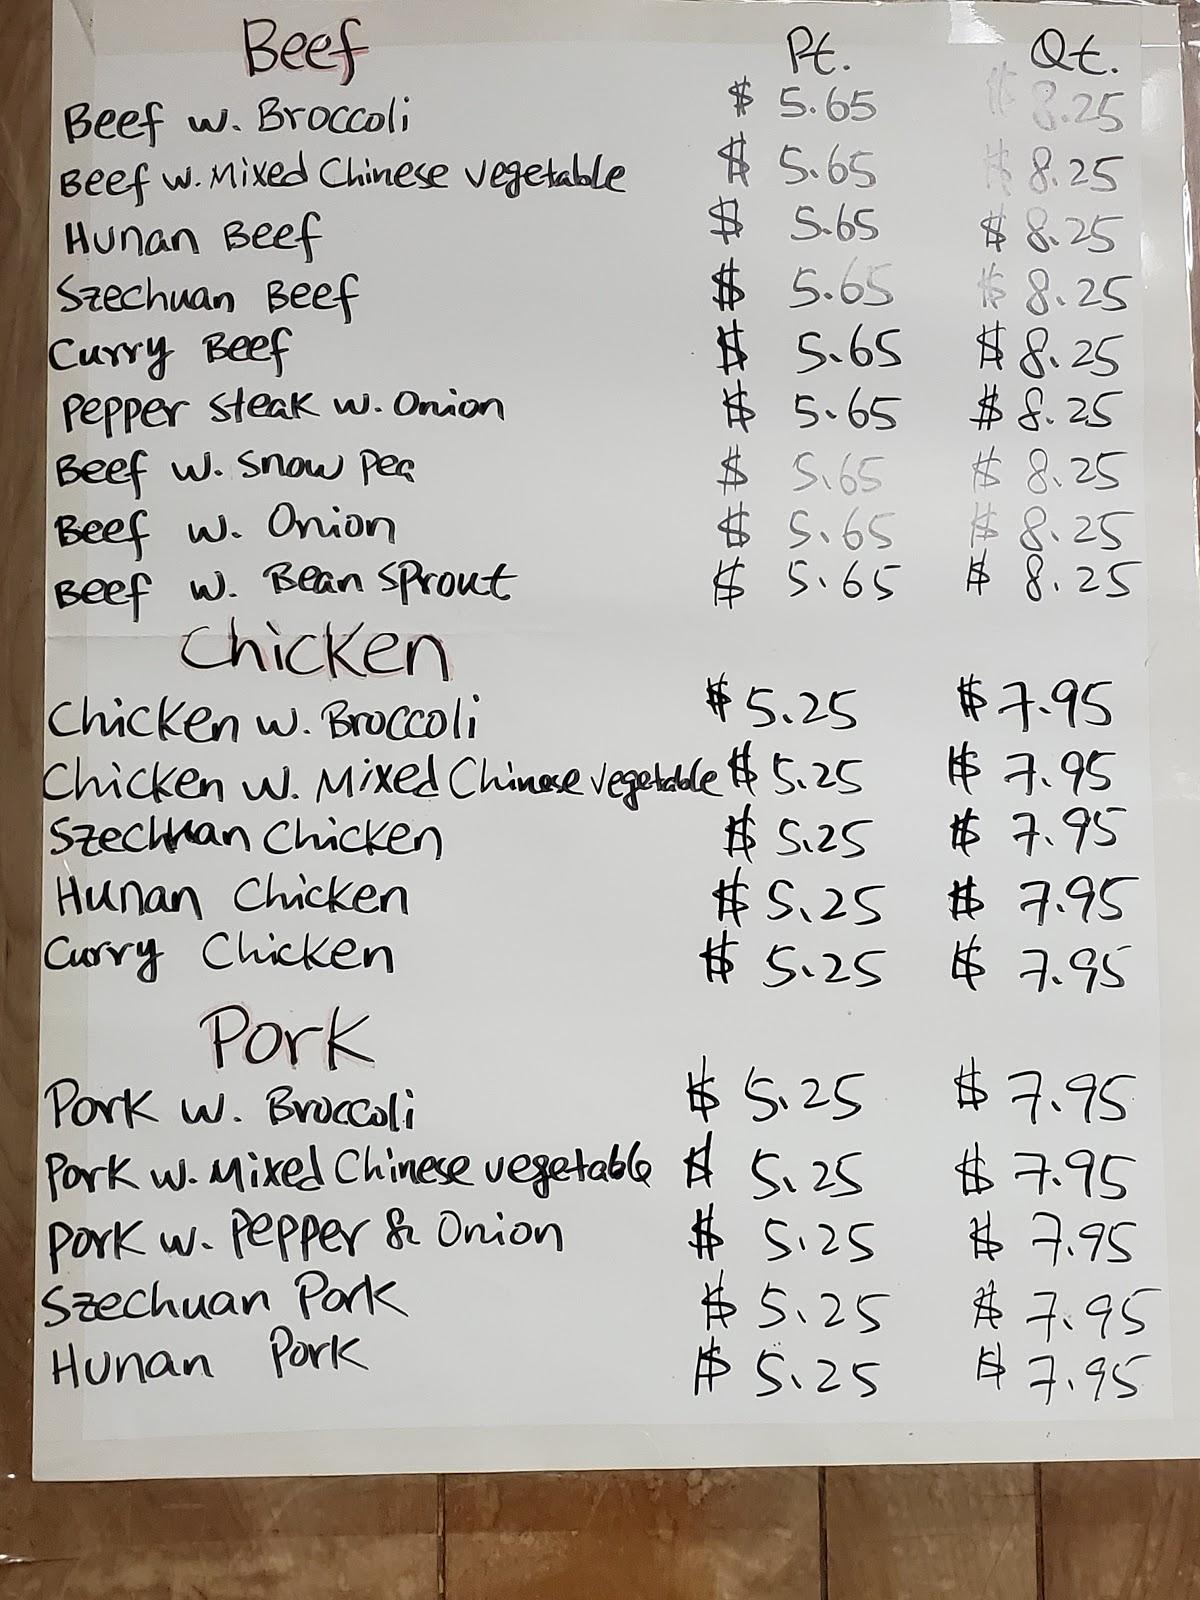 Beef Pt. Qt.
Beef w. Broccoli $ 5.65 $ 8.25
Beef w. Mixed Chinese vegetable $ 5.65 $ 8.25
Hunan Beef $ 5.65 $ 8.25
Szechuan Beef $ 5.65 $ 8.25
Curry Beef $ 5.65 $ 8.25
Pepper steak w. Onion $ 5.65 $ 8.25
Beef w. Snow Pea $ 5.65 $ 8.25
Beef w. Onion $ 5.65 $ 8.25
Beef w. Bean Sprout $ 5.65 $ 8.25
Chicken
Chicken w. Broccoli $ 5.25 $ 7.95
Chicken w. Mixed Chinese vegetable $ 5.25 $ 7.95
Szechuan Chicken $ 5.25 $ 7.95
Hunan Chicken $ 5.25 $ 7.95
Curry Chicken $ 5.25 $ 7.95
Pork
Pork w. Broccoli $ 5.25 $ 7.95
Pork w. Mixed Chinese vegetable $ 5.25 $ 7.95
Pork w. Pepper & Onion $ 5.25 $ 7.95
Szechuan Pork $ 5.25 $ 7.95
Hunan Pork $ 5.25 $ 7.95